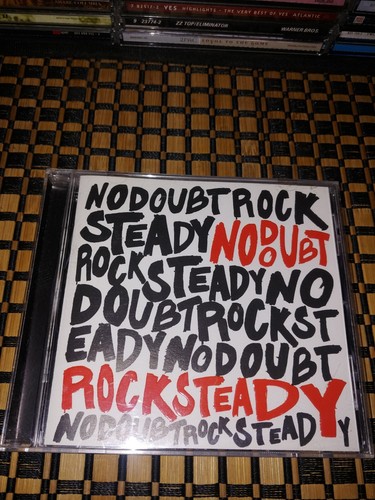 YES HIGHLIGHTS - THE VERY BEST OF YES ATLANTIC
ZZ TOP/ELIMINATOR WARNER BROS.
NODOUBTROCK
STEADYNODOUBT
ROCKSTEADYNO
DOUBTROCKST
EADYNODOUBT
ROCKSTEADY
NODOUBTROCKSTEADY